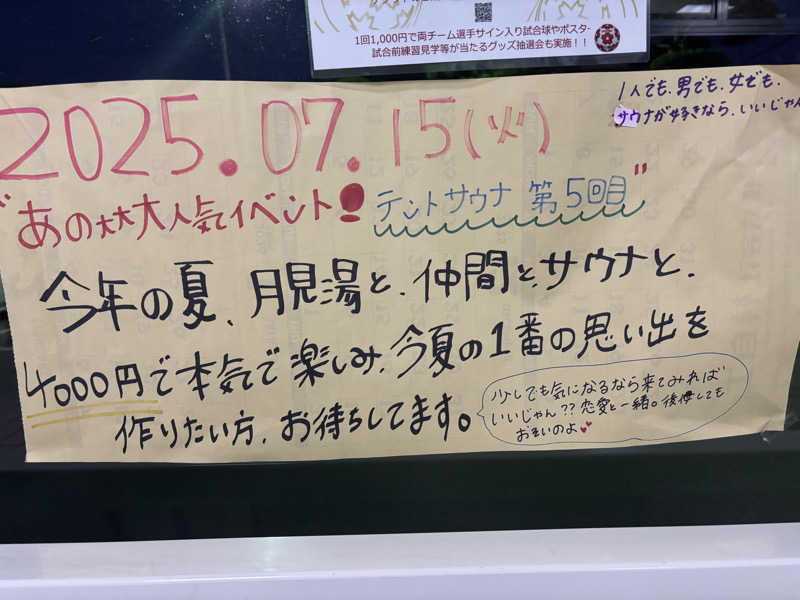 1回1,000円で両チーム選手サイン入り試合球やポスター
試合前練習見学等が当たるグッズ抽選会も実施！！
1人でも、男でも、女でも、
サウナが好きなら、いいじゃん
2025.07.15(火)
"あの大大大人気イベント！テントサウナ 第5回目"
今年の夏、月見湯と、仲間と、サウナと、
4000円で本気で楽しみ、今夏の1番の思い出を
作りたい方、お待ちしてます。
少しでも気になるなら来てみれば
いいじゃん??恋愛と一緒。後悔しても
おそいのよ